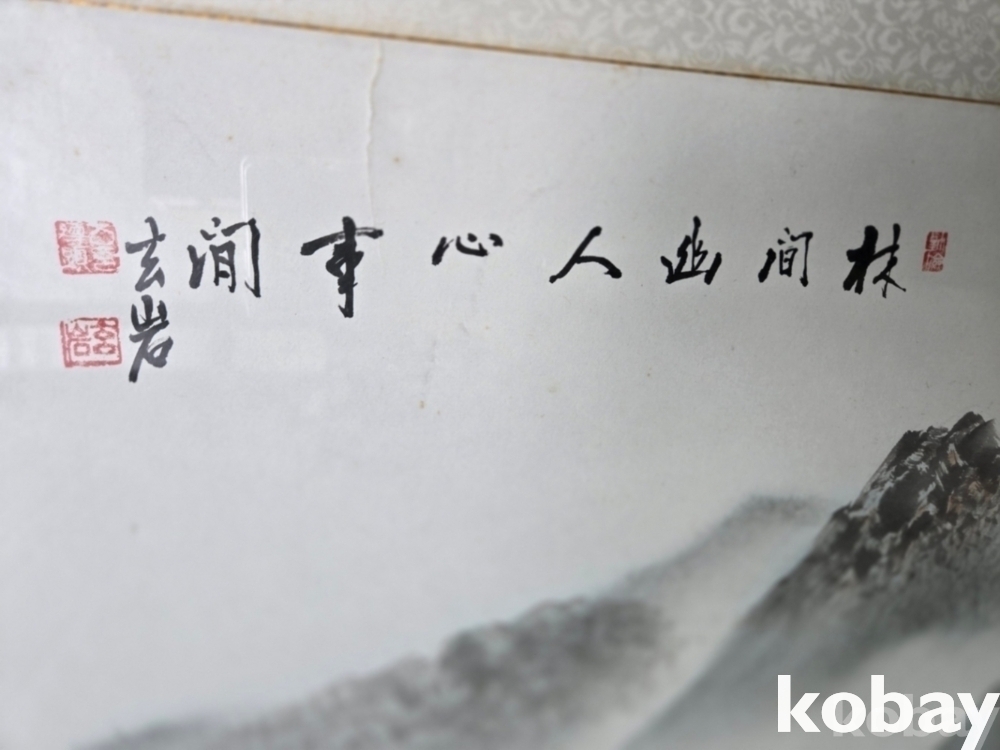 林間幽人心事閒
玄岩
kobay
kobay